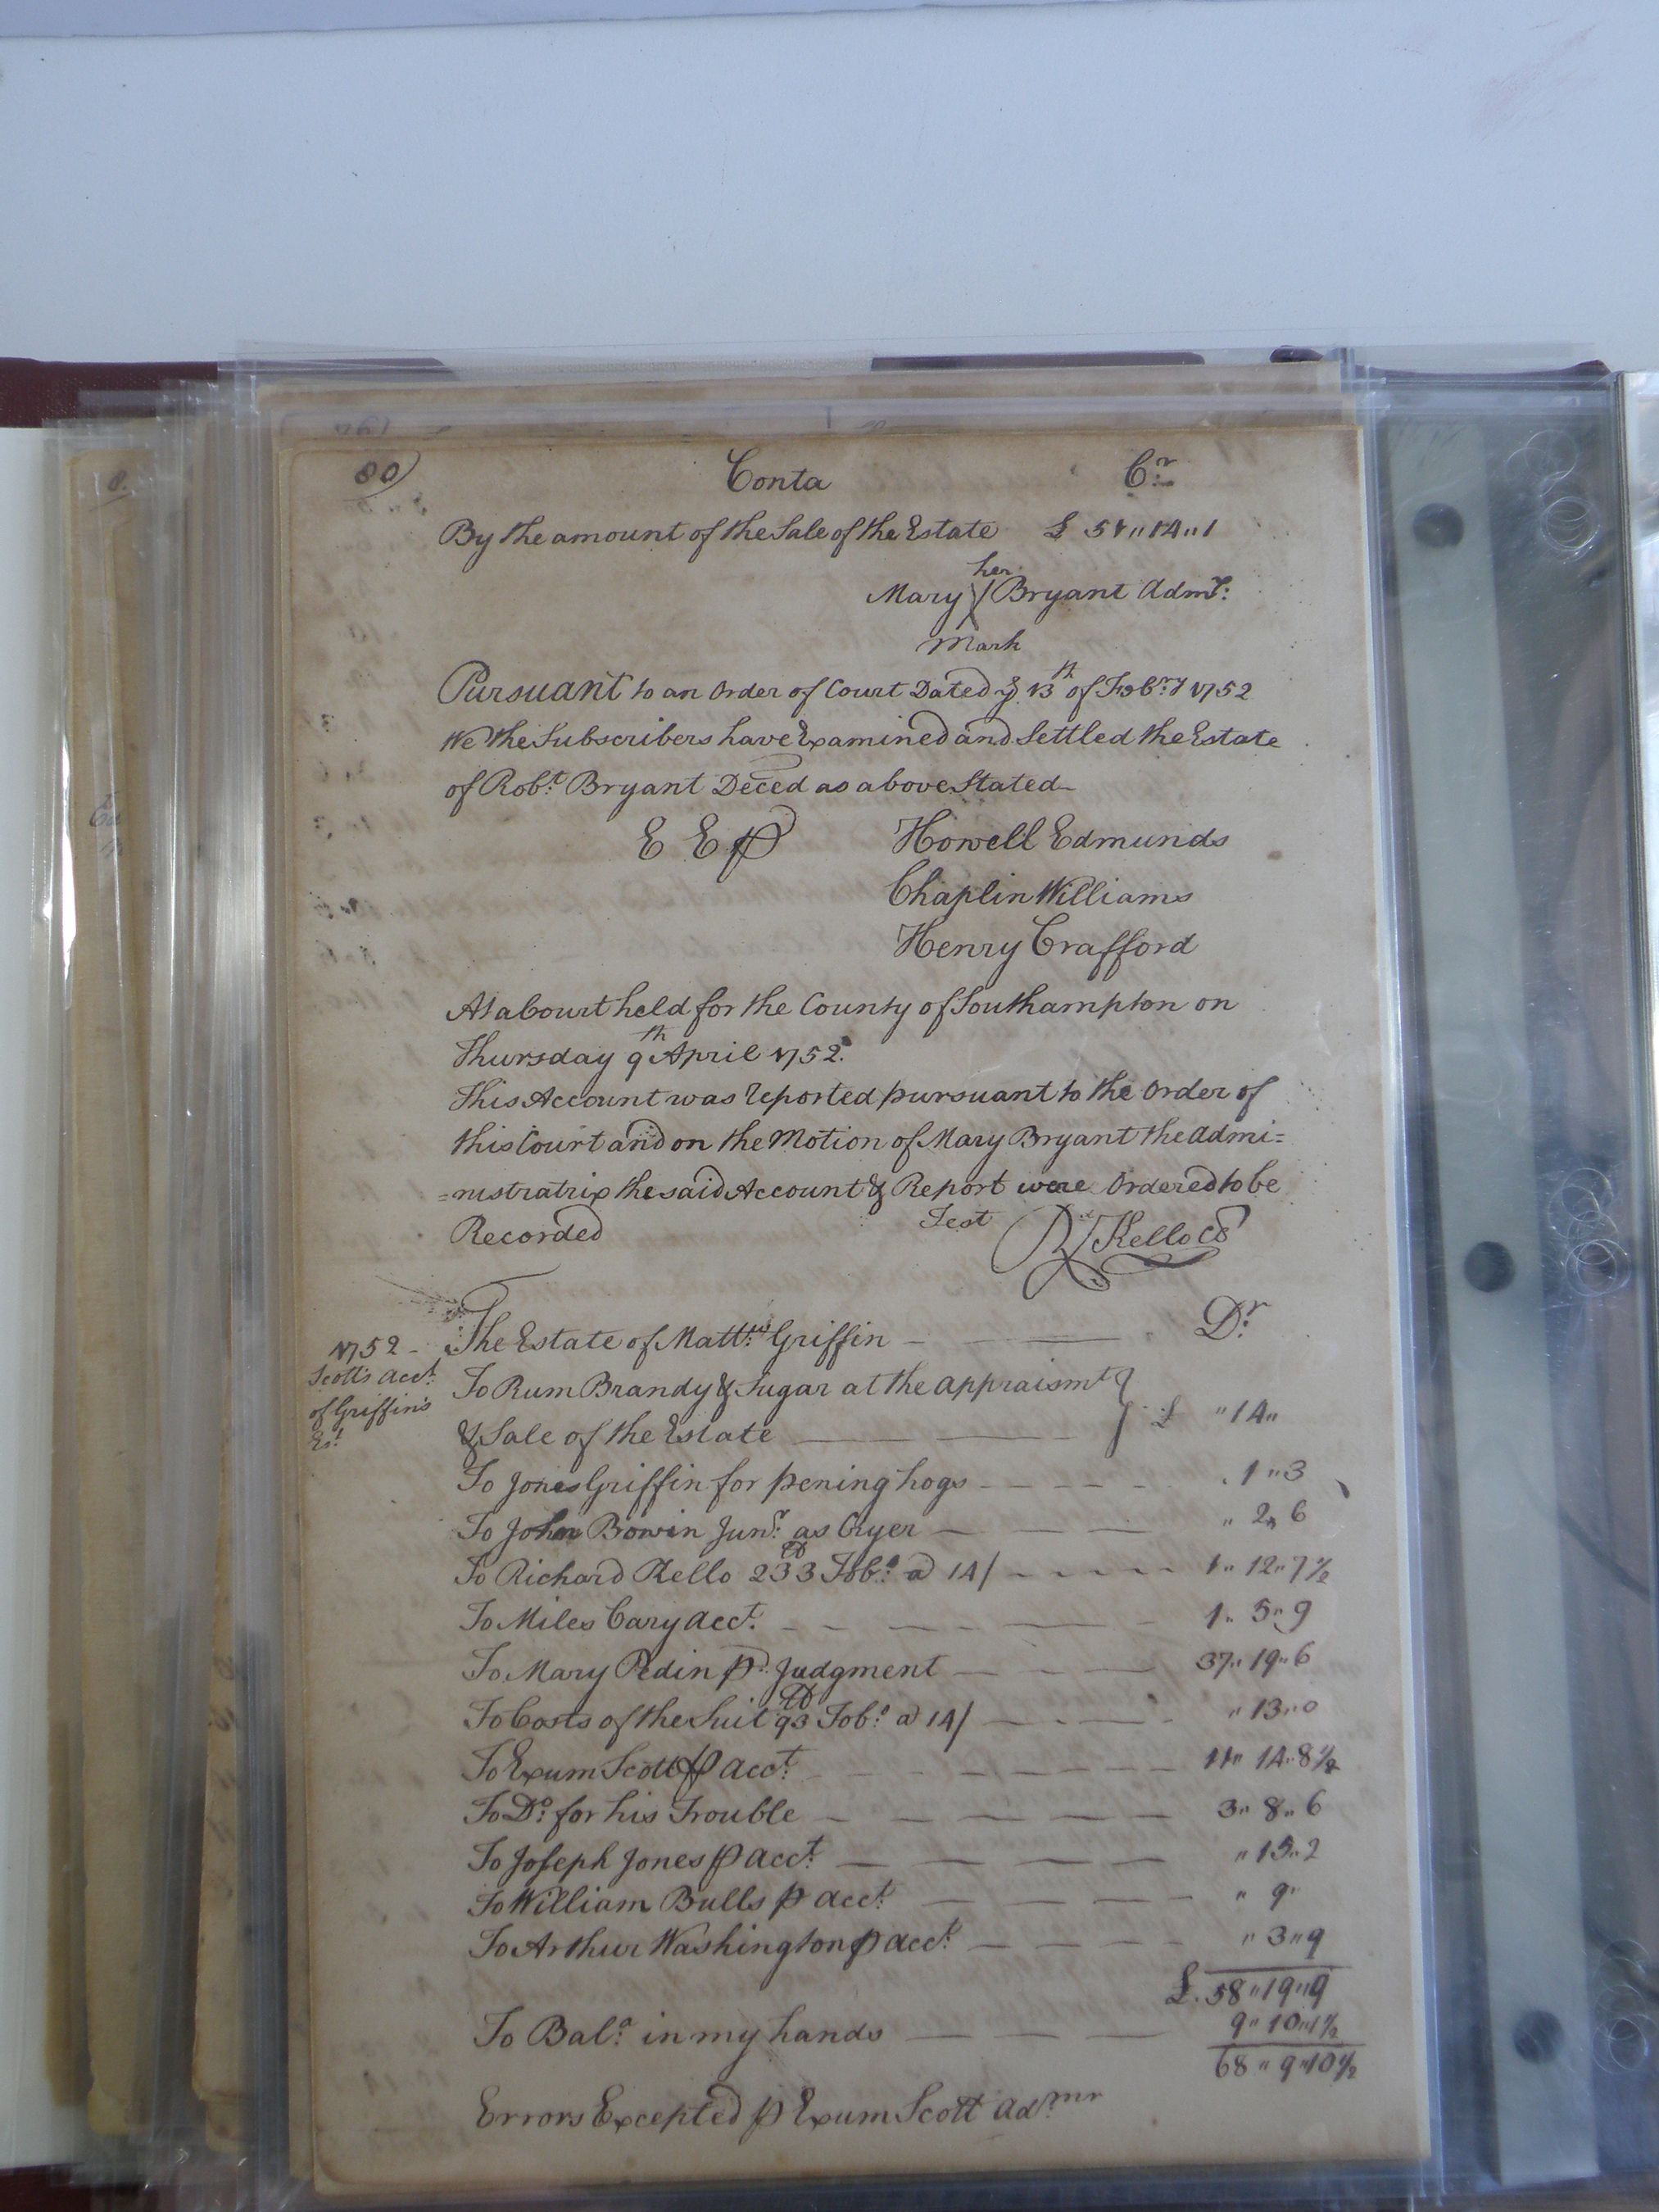 80)
Conta Cr
By the amount of the Sale of the Estate £ 51"14"1
her
Mary Bryant Admr:
Mark
Pursuant to an Order of Court Dated ye 13th of Febry 1752
We the Subscribers have Examined and Settled the Estate
of Robt. Bryant Deced as above Stated
E E p Howell Edmunds
Chaplin Williams
Henry Crafford
At a Court held for the County of Southampton on
Thursday 9th April 1752.
This Account was reported pursuant to the Order of
this Court and on the Motion of Mary Bryant the Admi=
=nistratrix the said Account & Report were Ordered to be
Recorded Test Rd Kello CC
1752 - The Estate of Matt:ws Griffin Dr
Scotts Acct.
of Griffin's
Est.
To Rum Brandy & Sugar at the appraismt
& Sale of the Estate £ "14"
To Jones Griffin for pening hogs 1"3
To John Bowin Junr. as Cryer " 2"6
To Richard Kello 233 lb Tobo. a 14/ 1"12"7½
To Miles Cary acct. 1"5"9
To Mary Edin pd. Judgment 37"19"6
To Costs of the Suit 93 lb Tobo. a 14/ "13"0
To Exum Scott p acct. 11"14"8½
To Do. for his Trouble 3"8"6
To Joseph Jones p acct. "15"2
To William Bulls p acct. " 9"
To Arthur Washington p acct. " 3"9
£. 58"19"9
To Balo. in my hands 9"10"1½
68"9"10½
Errors Excepted p Exum Scott Ad.mr